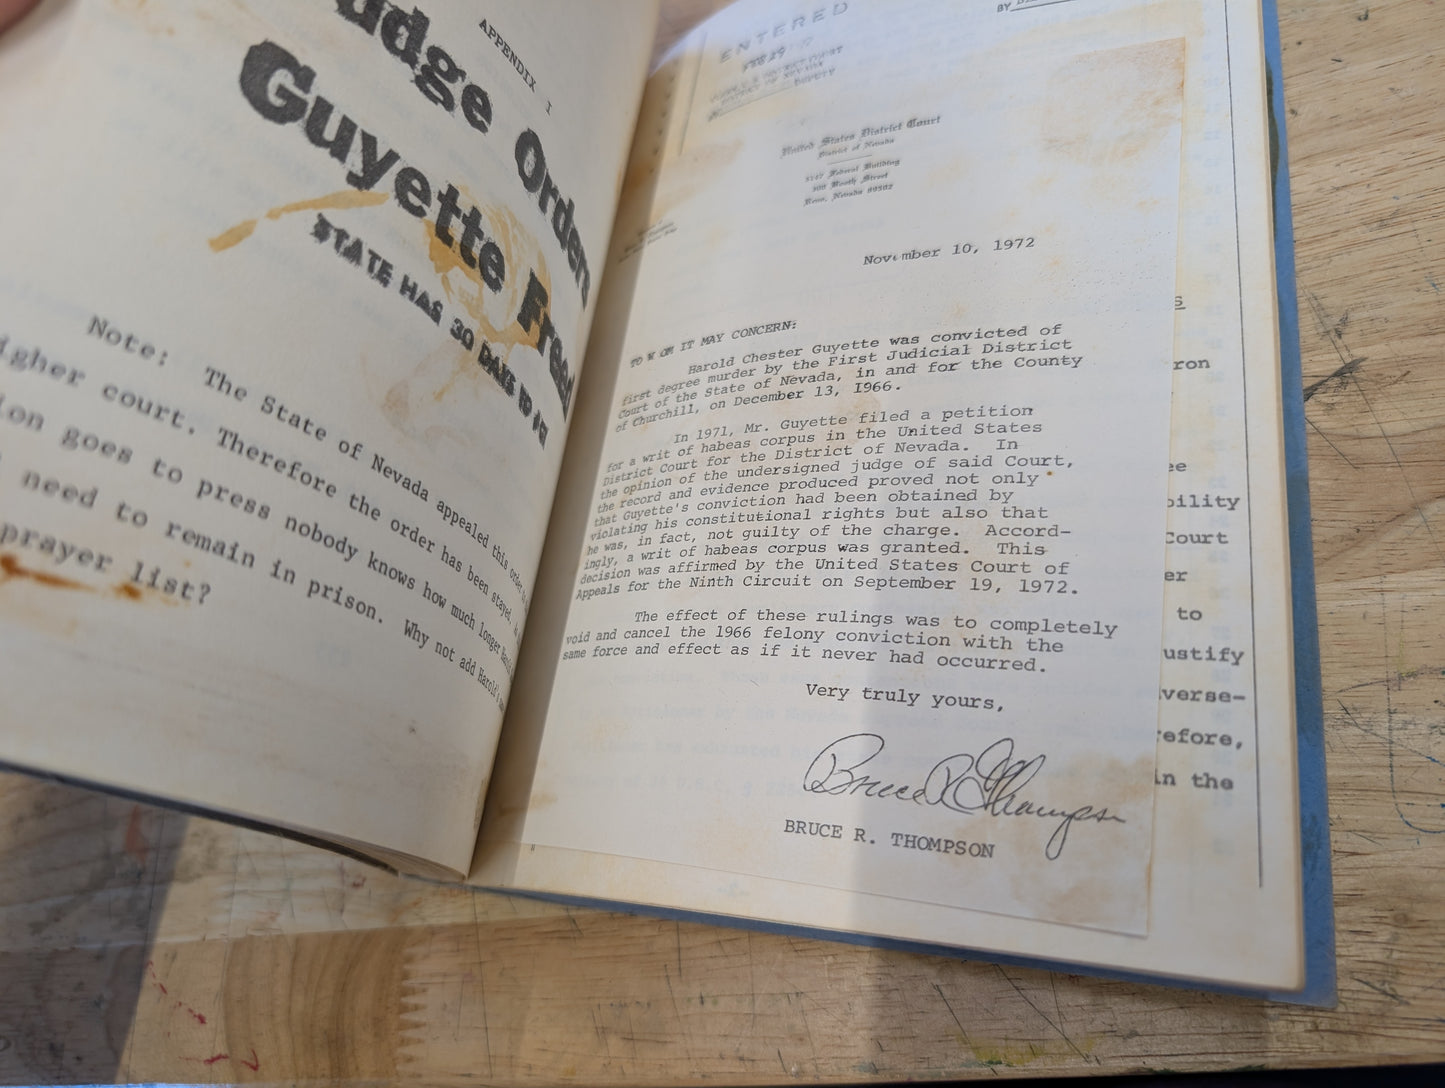 APPENDIX I
udge Orders
Guyette Freed
STATE HAS 30 DAYS
Note: The State of Nevada appealed this order to
igher court. Therefore the order has been stayed,
ion goes to press nobody knows how much longer Harold
need to remain in prison. Why not add Harold's
prayer list?
ENTERED
BY
United States District Court
District of Nevada
Federal Building
300 Booth Street
Reno, Nevada 89502
November 10, 1972
TO W OM IT MAY CONCERN:
Harold Chester Guyette was convicted of
first degree murder by the First Judicial District
Court of the State of Nevada, in and for the County
of Churchill, on December 13, 1966.
In 1971, Mr. Guyette filed a petition
for a writ of habeas corpus in the United States
District Court for the District of Nevada. In
the opinion of the undersigned judge of said Court,
the record and evidence produced proved not only
that Guyette's conviction had been obtained by
violating his constitutional rights but also that
he was, in fact, not guilty of the charge. Accord-
ingly, a writ of habeas corpus was granted. This
decision was affirmed by the United States Court of
Appeals for the Ninth Circuit on September 19, 1972.
The effect of these rulings was to completely
void and cancel the 1966 felony conviction with the
same force and effect as if it never had occurred.
Very truly yours,
Bruce R Thompson
BRUCE R. THOMPSON
S
ron
ee
bility
Court
er
to
ustify
verse-
efore,
in the